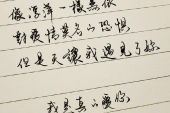 像浮萍一樣無依
對愛情莫名的恐懼
但是天讓我遇見了妳
我真的愛妳